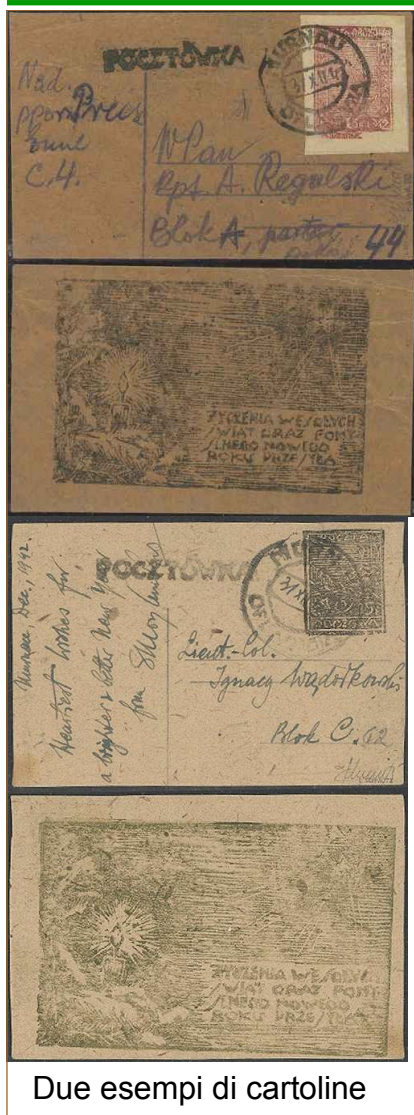 POCZTÓWKA
MURNAU
Nad.
ppor. Preis
C.4.
WPan
Kpt. A. Regulski
Blok A, parter, 44
ŻYCZENIA WESOŁYCH
ŚWIĄT ORAZ POMY-
ŚLNEGO NOWEGO
ROKU PRZESYŁA
Murnau, Dec., 1942.
Heartiest wishes for
a brighter & better New Year
from
POCZTÓWKA
Lieut.-Col.
Ignacy Wądołkowski
Blok C. 62
ŻYCZENIA WESOŁYCH
ŚWIĄT ORAZ POMY-
ŚLNEGO NOWEGO
ROKU PRZESYŁA
Due esempi di cartoline